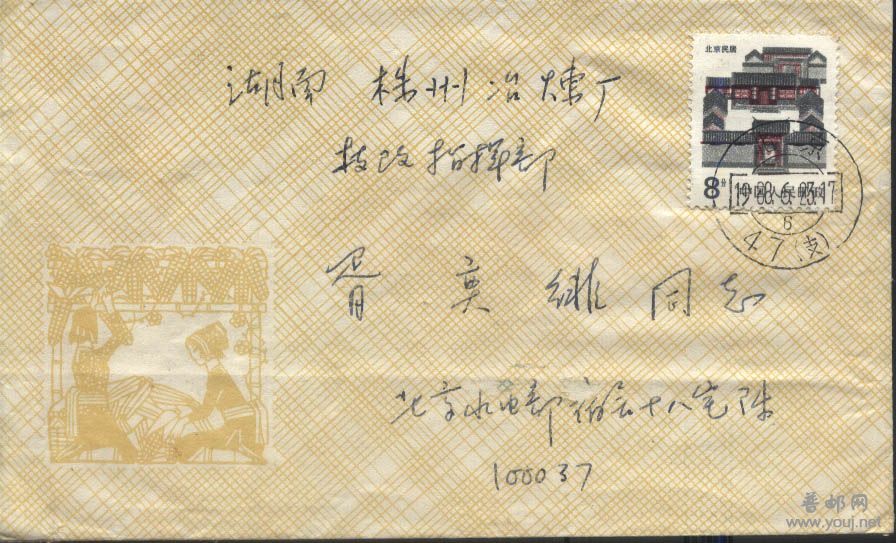 北京民居
湖南 株州冶煉厂
技改指挥部
京
8分
1988.6.23.17
6
47(支)
胥 同志
北京水电部 十八宅陈
100037
普邮网
www.youj.net